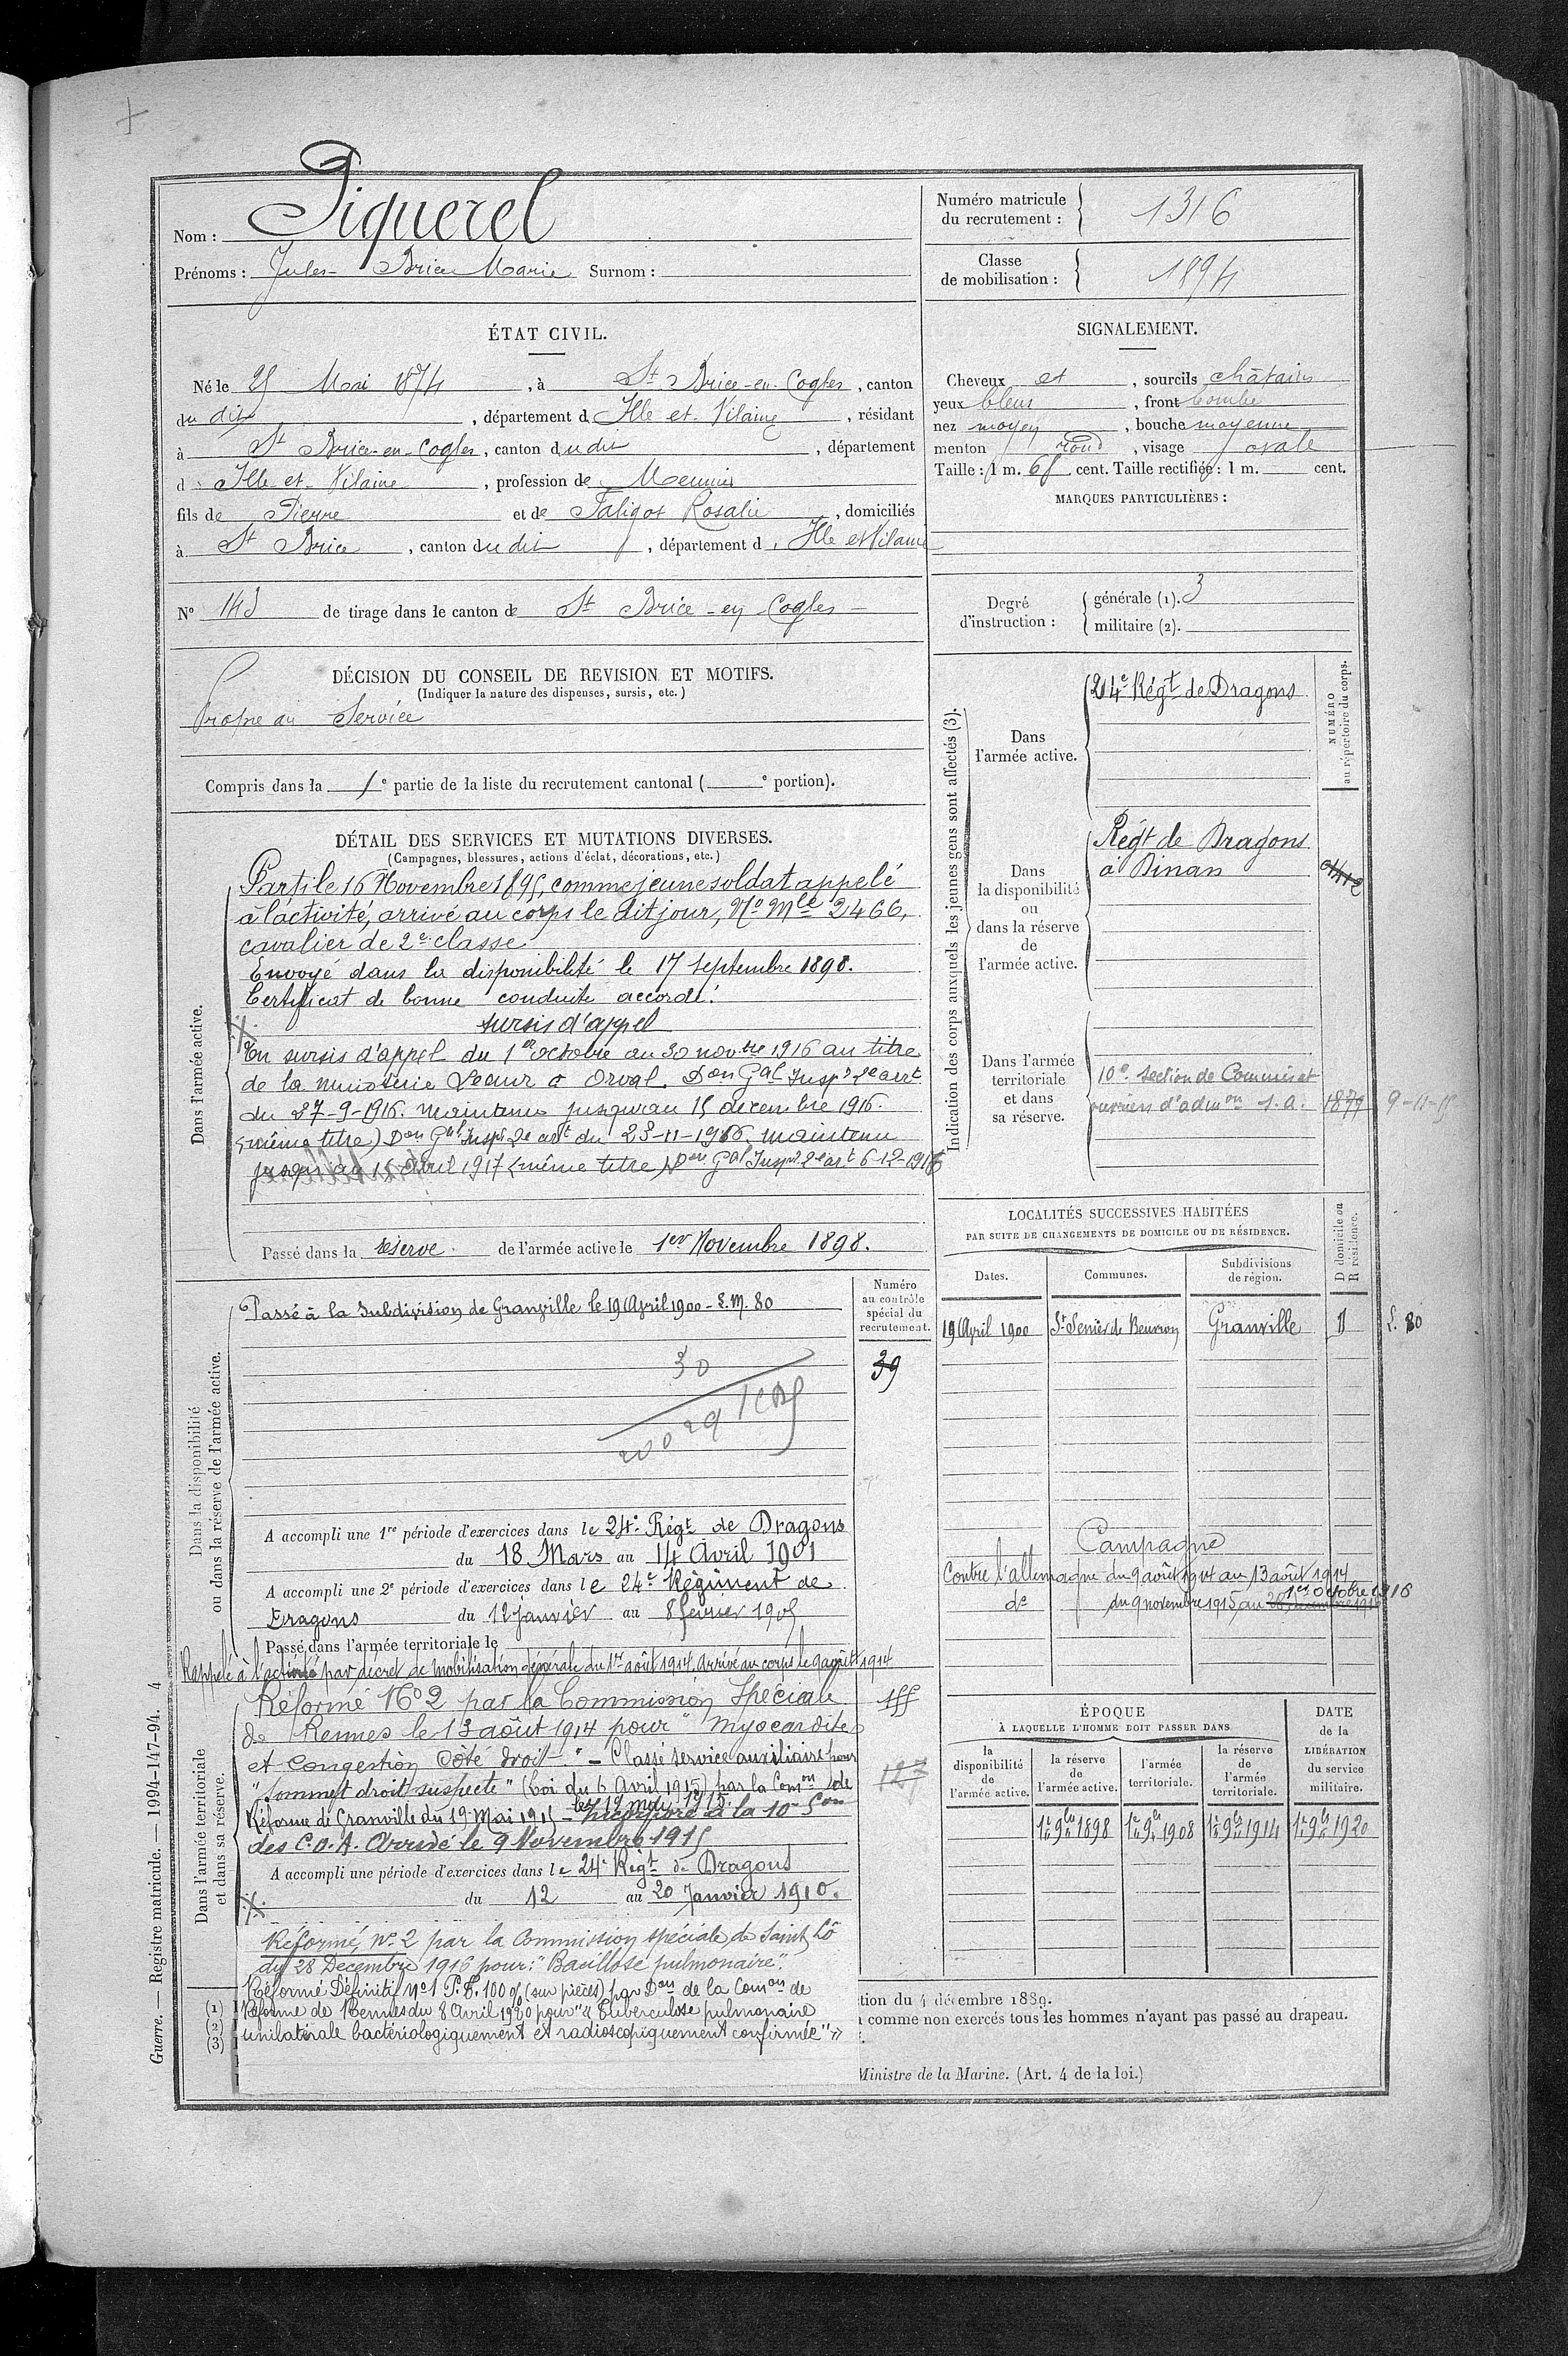 Nom : Piquerel
Prénoms : Jules Brice Marie Surnom :
Numéro matricule du recrutement : 1316
Classe de mobilisation : 1894
ÉTAT CIVIL.
Né le 25 Mai 1874, à St Brice-en-Cogles, canton
du dit, département d Ille et Vilaine, résidant
à St Brice-en-Cogles, canton du dit, département
d Ille et Vilaine, profession de Meunier
fils de Pierre et de Faligot Rosalie, domiciliés
à St Brice, canton du dit, département d Ille et Vilaine
N° 143 de tirage dans le canton de St Brice-en-Cogles
DÉCISION DU CONSEIL DE REVISION ET MOTIFS.
(Indiquer la nature des dispenses, sursis, etc.)
Propre au Service
Compris dans la 1e partie de la liste du recrutement cantonal ( e portion).
SIGNALEMENT.
Cheveux et, sourcils châtains
yeux bleus, front bombé
nez moyen, bouche moyenne
menton rond, visage ovale
Taille : 1 m. 65 cent. Taille rectifiée : 1 m. cent.
MARQUES PARTICULIÈRES :
Degré d'instruction : générale (1). 3
militaire (2).
DÉTAIL DES SERVICES ET MUTATIONS DIVERSES.
(Campagnes, blessures, actions d'éclat, décorations, etc.)
Dans l'armée active.
Parti le 16 Novembre 1895, comme jeune soldat appelé
à l'activité, arrivé au corps le dit jour, No Mle 2466,
cavalier de 2e classe
Envoyé dans la disponibilité le 17 septembre 1898.
Certificat de bonne conduite accordé.
sursis d'appel
En sursis d'appel du 1er octobre au 30 novbre 1916 au titre
de la minoterie Leaur à Orval. Don Gal Inspr 2e art
du 27-9-1916. maintenu jusqu'au 15 décembre 1916.
(même titre) Don Gal Inspr 2e art du 23-11-1916. maintenu
jusqu'au 15 avril 1917 (même titre) Don Gal Inspr 2e art 6-12-1916
Passé dans la réserve de l'armée active le 1er Novembre 1898.
Indication des corps auxquels les jeunes gens sont affectés (3).
NUMÉRO au répertoire du corps.
Dans l'armée active.
24e Régt de Dragons
Dans la disponibilité ou dans la réserve de l'armée active.
Régt de Dragons
à Dinan
Dans l'armée territoriale et dans sa réserve.
10e Section de Commis et
ouvriers d'admon S.A. 1879 9-11-15
LOCALITÉS SUCCESSIVES HABITÉES
PAR SUITE DE CHANGEMENTS DE DOMICILE OU DE RÉSIDENCE.
Dates. Communes. Subdivisions de région. D domicile ou R résidence.
19 Avril 1900 St Senier de Beuvron Granville D L. 80
Dans la disponibilité ou dans la réserve de l'armée active.
Numéro au contrôle spécial du recrutement.
Passé à la Subdivision de Granville le 19 Avril 1900 - L.M. 80
39
30
A accompli une 1re période d'exercices dans le 24e Régt de Dragons
du 18 Mars au 14 Avril 1901
A accompli une 2e période d'exercices dans le 24e Régiment de
Dragons du 12 janvier au 8 février 1905
Passé dans l'armée territoriale le
Rappelé à l'activité par décret de mobilisation générale du 1er août 1914. Arrivé au corps le 9 août 1914
Campagne
Contre l'allemagne du 9 août 1914 au 13 août 1914
do du 9 novembre 1915 au 1er octobre 1916
Dans l'armée territoriale et dans sa réserve.
Réformé No 2 par la Commission Spéciale
de Rennes le 13 août 1914 pour "Myocardite
et congestion côté droit." - Classé service auxiliaire pour
"sommet droit suspecte" (Loi du 6 Avril 1915) par la Comon de
Réforme de Granville du 19 Mai 1915 - Incorporé à la 10e Son
des C.O.A. Arrivé le 9 Novembre 1915
127
A accompli une période d'exercices dans le 24e Régt de Dragons
du 12 au 20 Janvier 1910.
Réformé No 2 par la Commission spéciale de Saint Lô
du 28 Décembre 1916 pour : "Bacillose pulmonaire".
Réformé Définitif No 1 P.P. 100 % (sur pièces) par Don de la Comon de
Réforme de Rennes du 8 Avril 1920 pour "Tuberculose pulmonaire
unilatérale bactériologiquement et radioscopiquement confirmée"
ÉPOQUE
À LAQUELLE L'HOMME DOIT PASSER DANS
la disponibilité de l'armée active. la réserve de l'armée active. l'armée territoriale. la réserve de l'armée territoriale.
DATE de la LIBÉRATION du service militaire.
1er 9bre 1898 1er 9bre 1908 1er 9bre 1914 1er 9bre 1920
(1)
(2)
(3)
tion du 4 décembre 1889.
comme non exercés tous les hommes n'ayant pas passé au drapeau.
Ministre de la Marine. (Art. 4 de la loi.)
Guerre. — Registre matricule. — 1094-147-94. 4